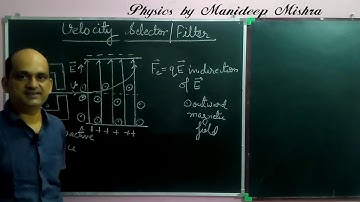 Physics by Manideep Mishra
Velocity Selector/Filter
E
V
Fe = qE in direction
of E
⊙ outward
magnetic
field